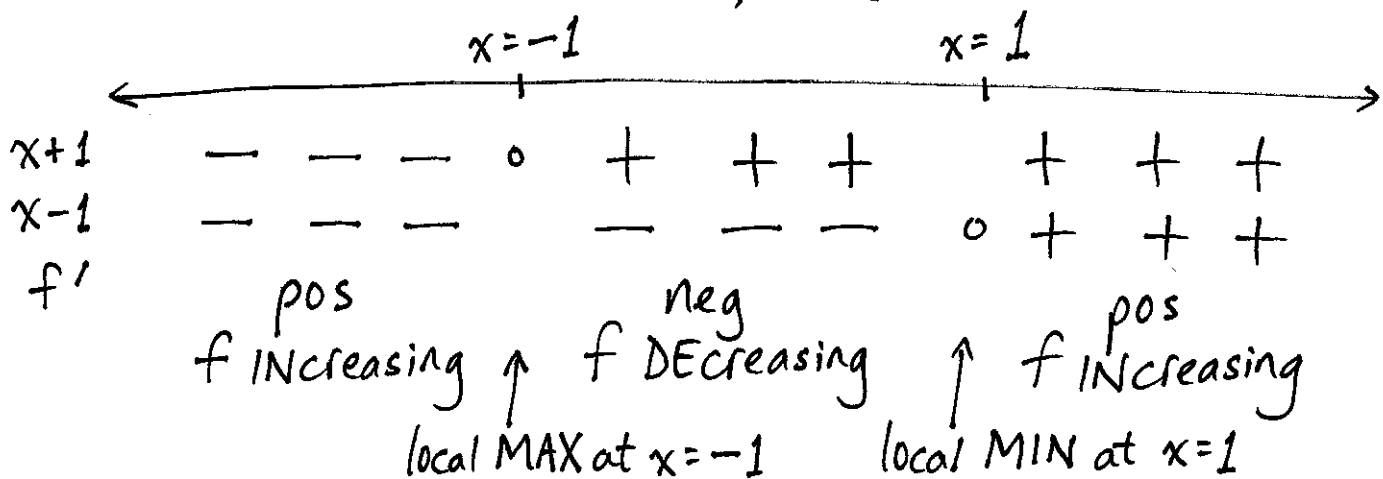 x=-1 x=1
x+1 — — — 0 + + + + + +
x-1 — — — — — — 0 + + +
f' pos neg pos
f INcreasing f DEcreasing f INcreasing
local MAX at x=-1 local MIN at x=1